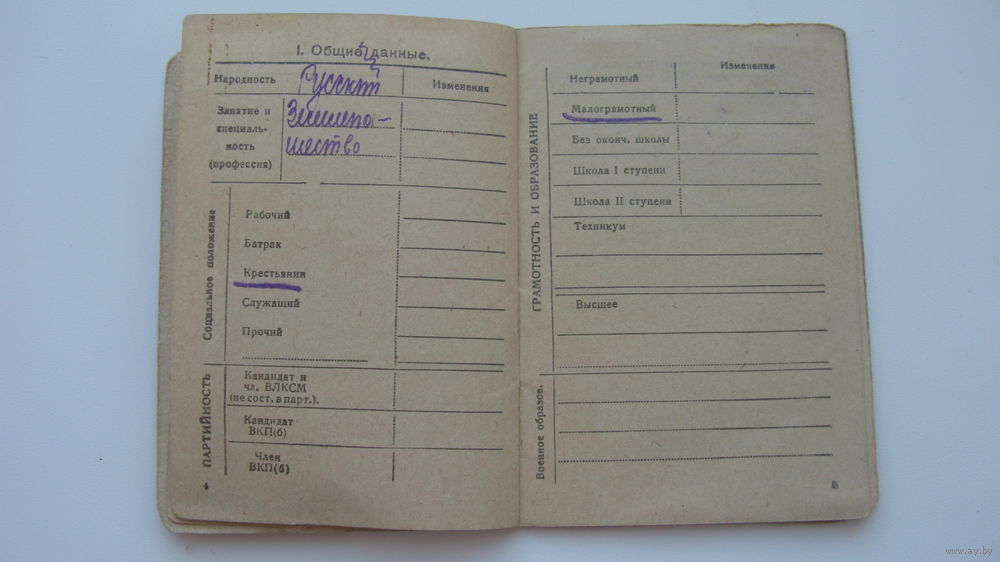 I. Общие данные.
Народность Русский Изменения
Занятие и
специаль-
ность
(профессия)
Социальное положение
Рабочий
Батрак
Крестьянин
Служащий
Прочий
ПАРТИЙНОСТЬ
Кандидат и
чл. ВЛКСМ
(не сост. в парт.).
Кандидат
ВКП(б)
Член
ВКП(б)
4
ГРАМОТНОСТЬ И ОБРАЗОВАНИЕ
Неграмотный Изменения
Малограмотный
Без оконч. школы
Школа I ступени
Школа II ступени
Техникум
Высшее
Военное образов.
www.ay.by